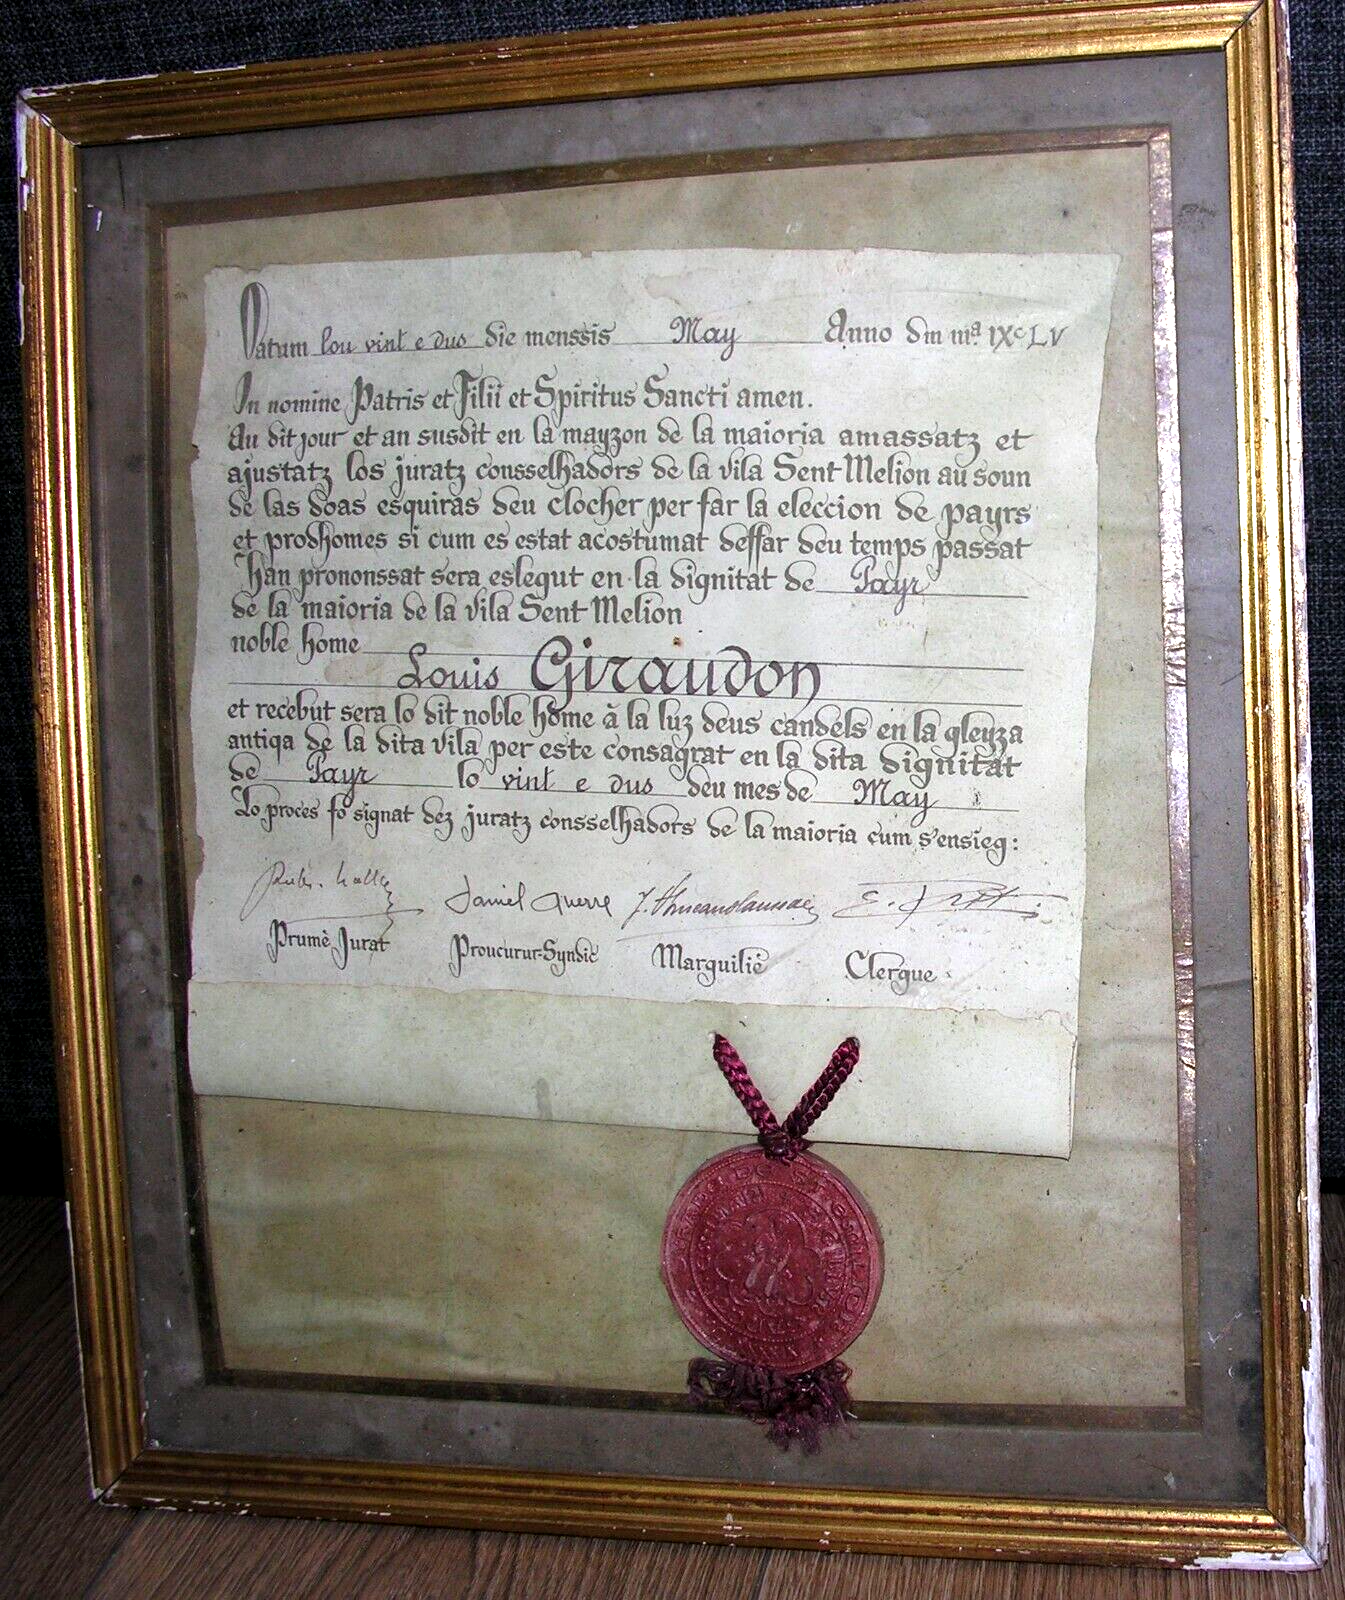 Datum lou vint e dus die menssis May Anno Dm mª IXᶜ LV
In nomine Patris et Filii et Spiritus Sancti amen.
Au dit jour et an susdit en la mayzon de la maioria amassatz et
ajustatz los juratz consselhadors de la vila Sent Melion au soun
de las doas esquiras deu clocher per far la eleccion de payrs
et prodhomes si cum es estat acostumat deffar deu temps passat
Han prononssat sera eslegut en la dignitat de Payr
de la maioria de la vila Sent Melion
noble home
Louis Giraudon
et recebut sera lo dit noble home à la luz deus candels en la gleyza
antiqa de la dita vila per este consagrat en la dita dignitat
de Payr lo vint e dus deu mes de May
Lo proces fo signat dez juratz consselhadors de la maioria cum s'ensieg:
Daniel Querre
Prumè Jurat Proucurur-Syndic Marguiliè Clergue